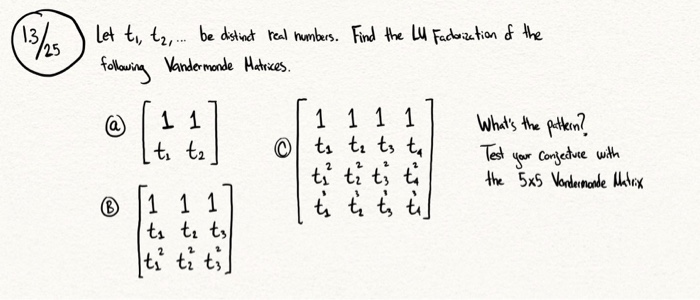 1.3/25
Let t₁, t₂, ... be distinct real numbers. Find the LU Factorization of the
following Vandermonde Matrices.
(a) [1 1
t₁ t₂]
(B) [1 1 1
t₁ t₂ t₃
t₁² t₂² t₃²]
(C) [1 1 1 1
t₁ t₂ t₃ t₄
t₁² t₂² t₃² t₄²
t₁³ t₂³ t₃³ t₄³]
What's the pattern?
Test your Conjecture with
the 5x5 Vandermonde Matrix